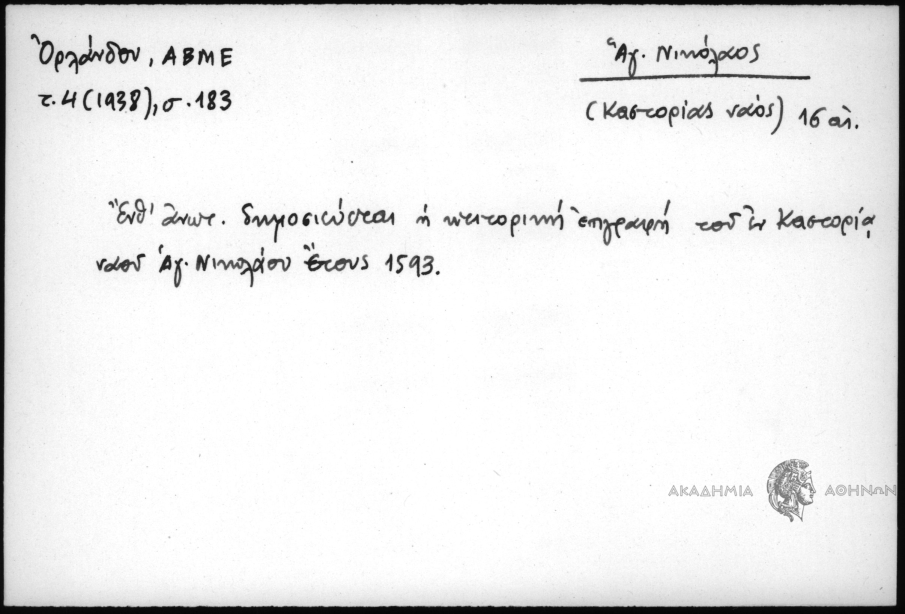 Ὀρλάνδου, ΑΒΜΕ
τ. 4 (1938), σ. 183
Ἅγ. Νικόλαος
(Καστορίας ναὸς) 16 αἰ.
Ἔνθ' ἀνωτ. δημοσιεύεται ἡ κτιτορικὴ ἐπιγραφὴ τοῦ ἐν Καστορίᾳ
ναοῦ Ἁγ. Νικολάου ἔτους 1593.
ΑΚΑΔΗΜΙΑ ΑΘΗΝΩΝ